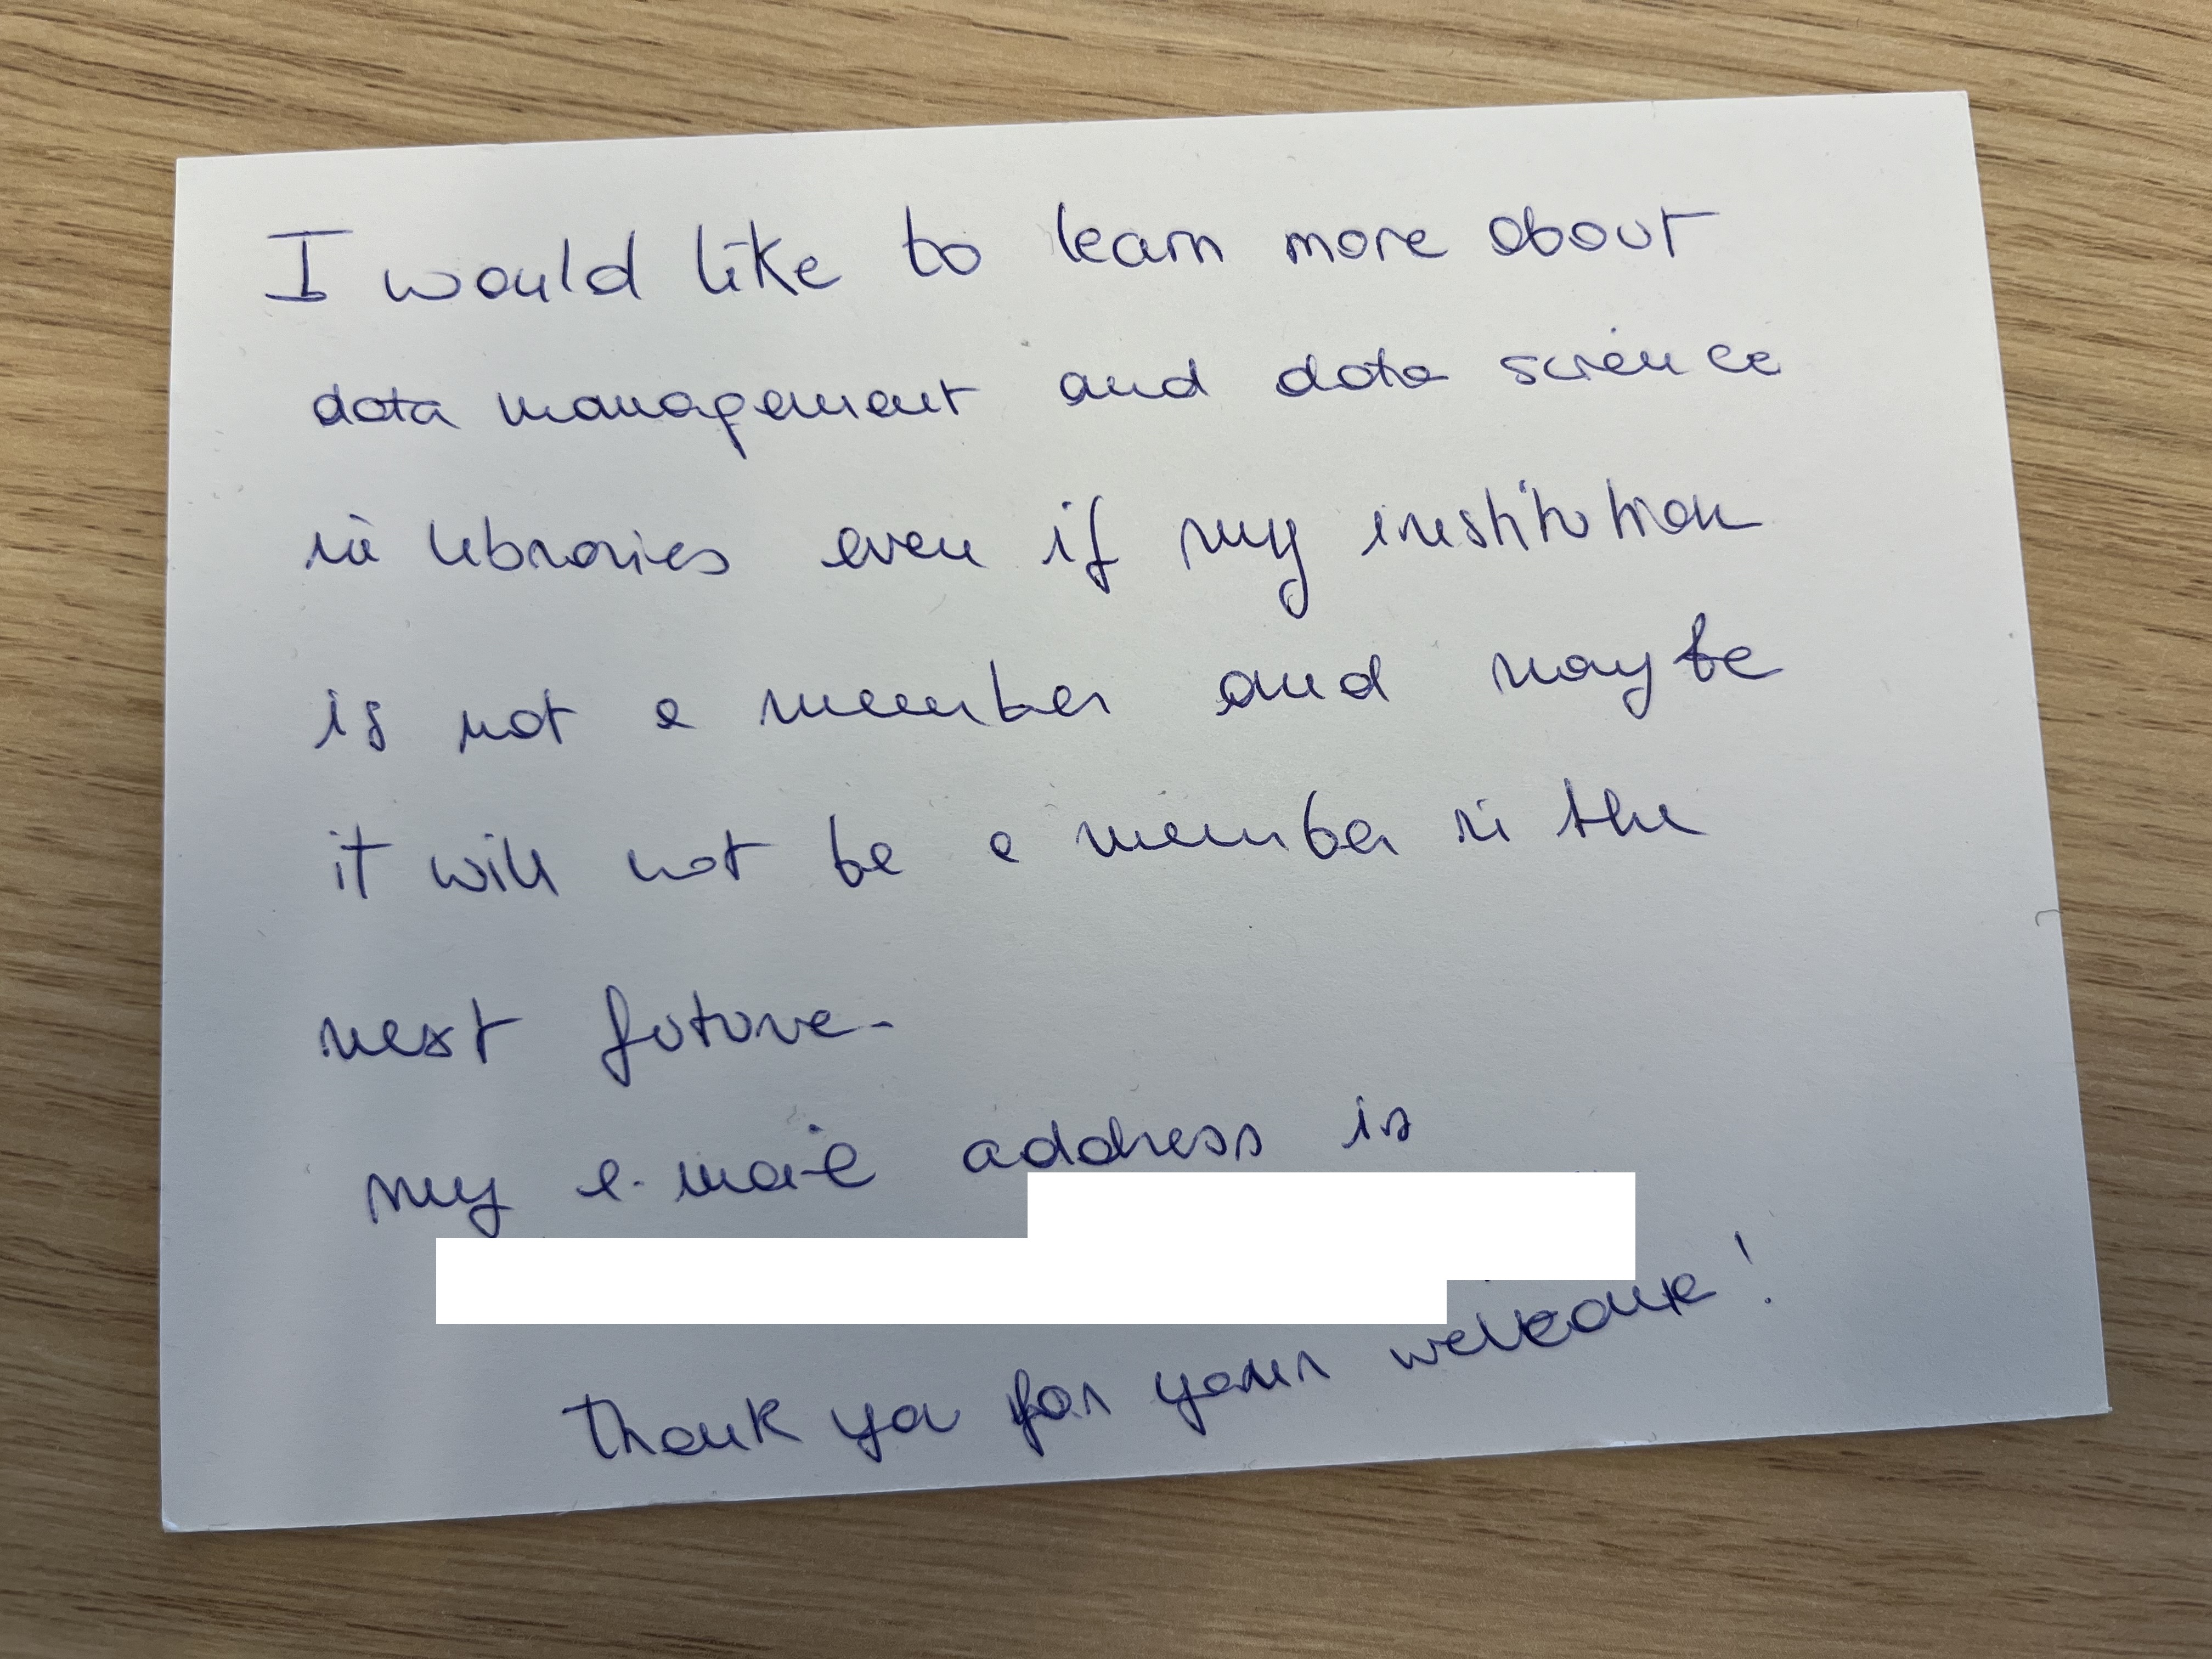 I would like to learn more about
data management and data science
in libraries even if my institution
is not a member and maybe
it will not be a member in the
next future.
my e-mail address is
Thank you for your welcome!